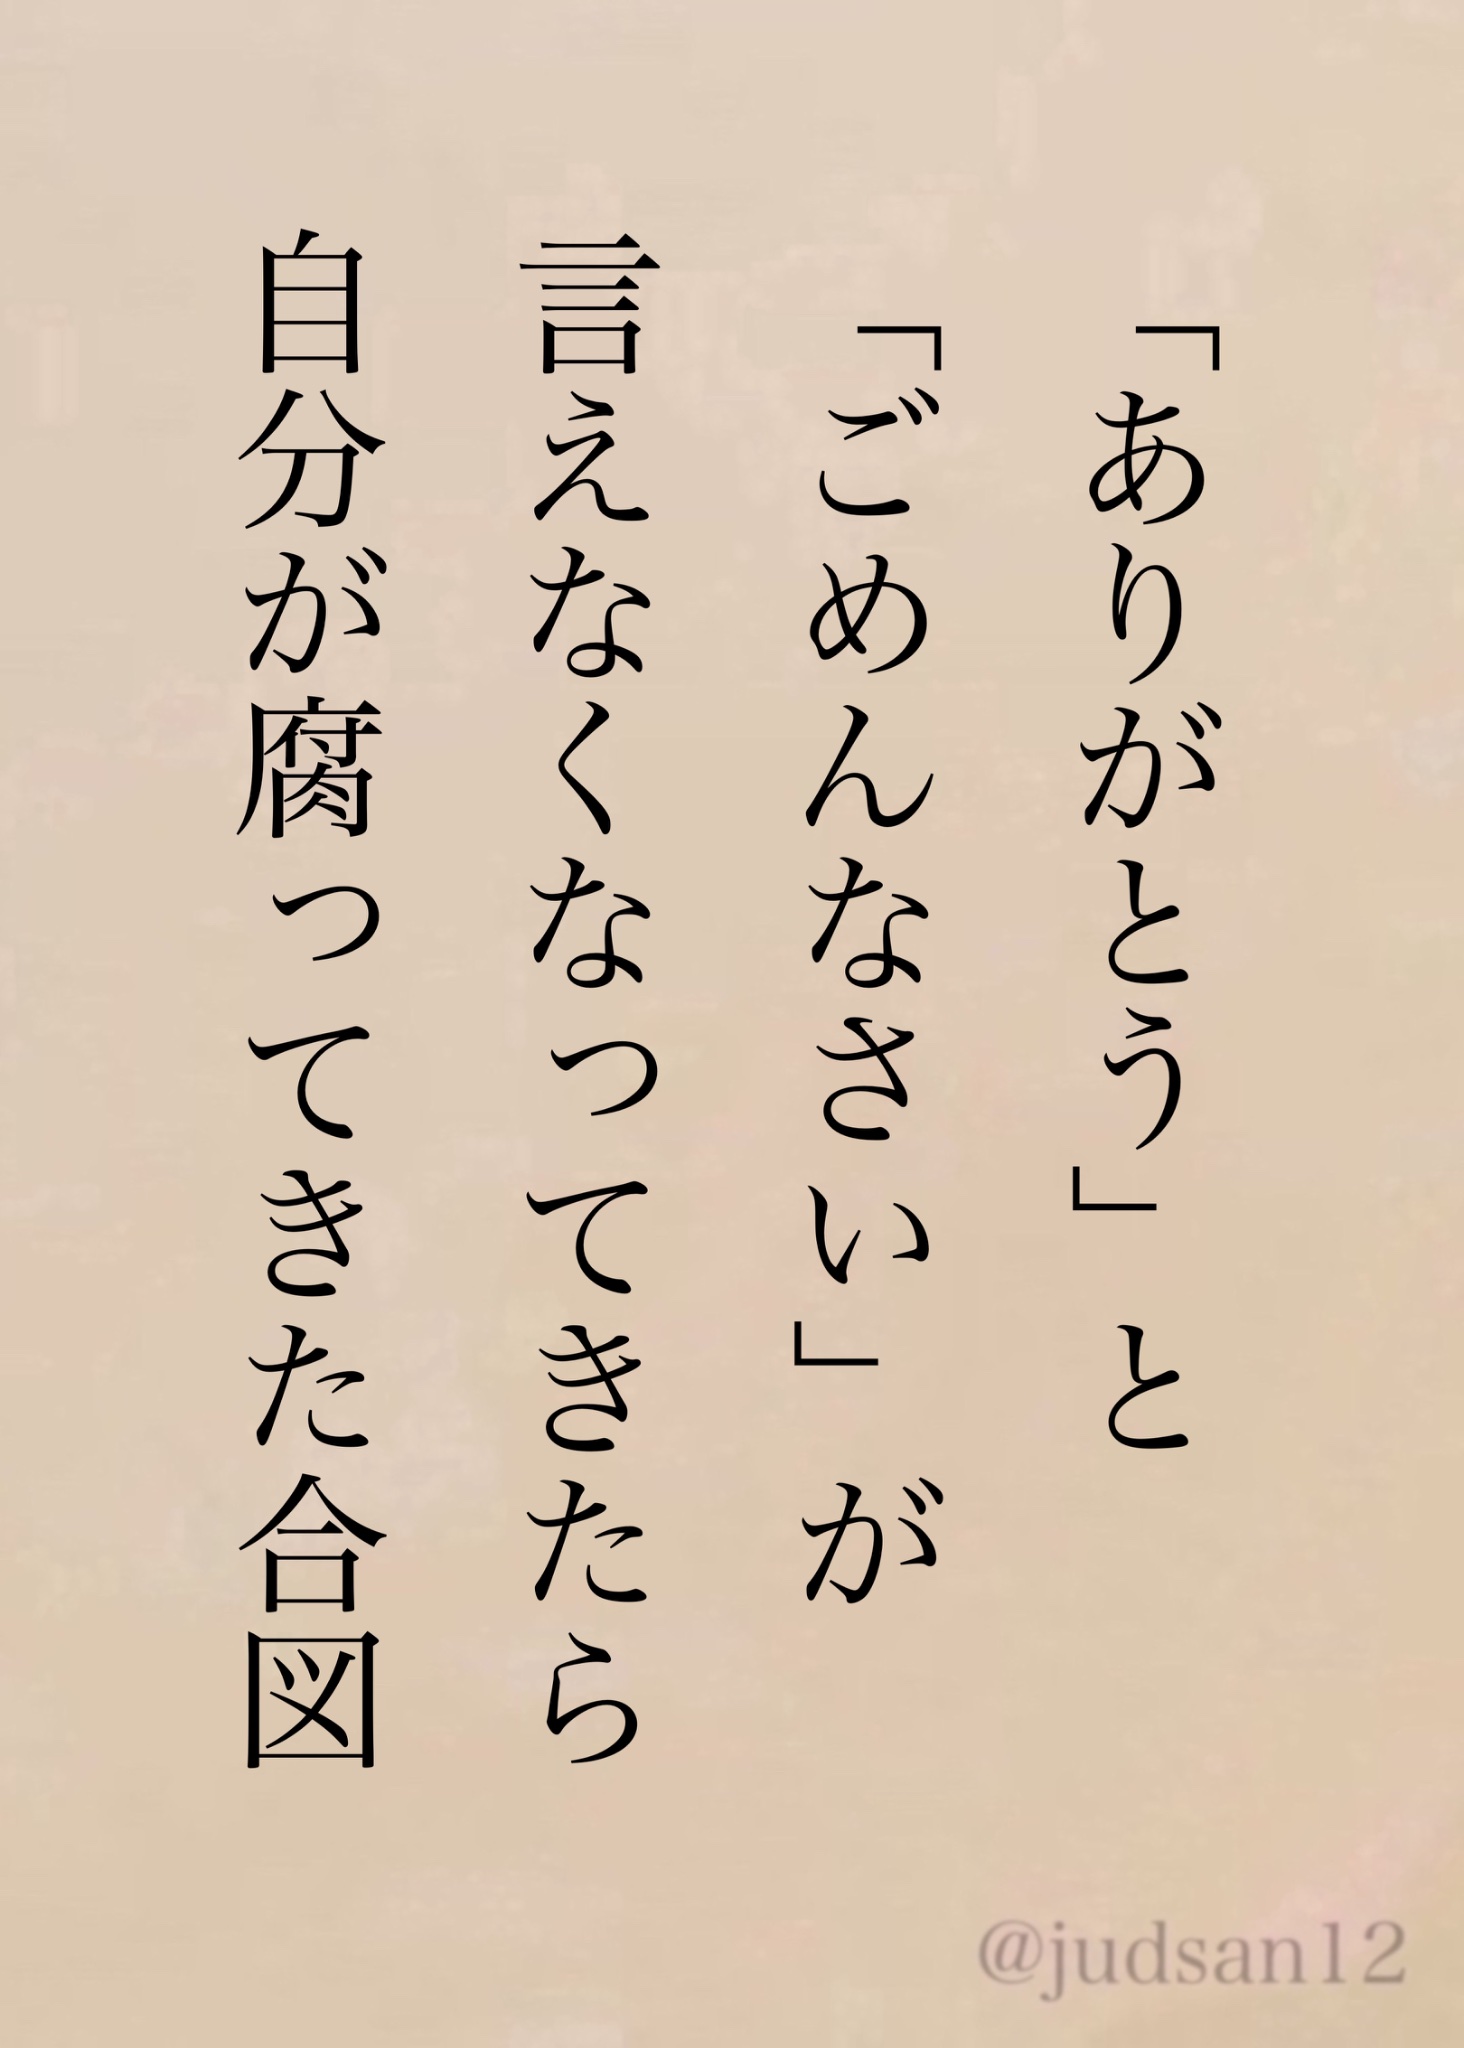 「ありがとう」と
「ごめんなさい」が
言えなくなってきたら
自分が腐ってきた合図
@judsan12